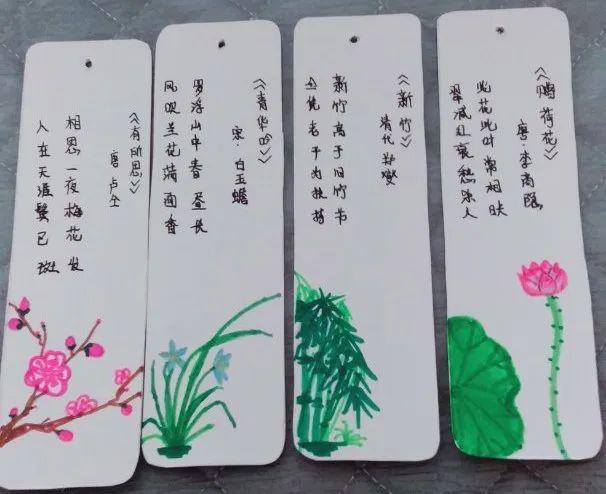 《有所思》
唐 卢仝
相思一夜梅花发
人在天涯鬓已斑
《青华吟》
宋·白玉蟾
罗浮山中春昼长
风吹兰花满面香
《新竹》
清代 郑燮
新竹高于旧竹节
全凭老干为扶持
《赠荷花》
唐·李商隐
此花此叶常相映
翠减红衰愁杀人